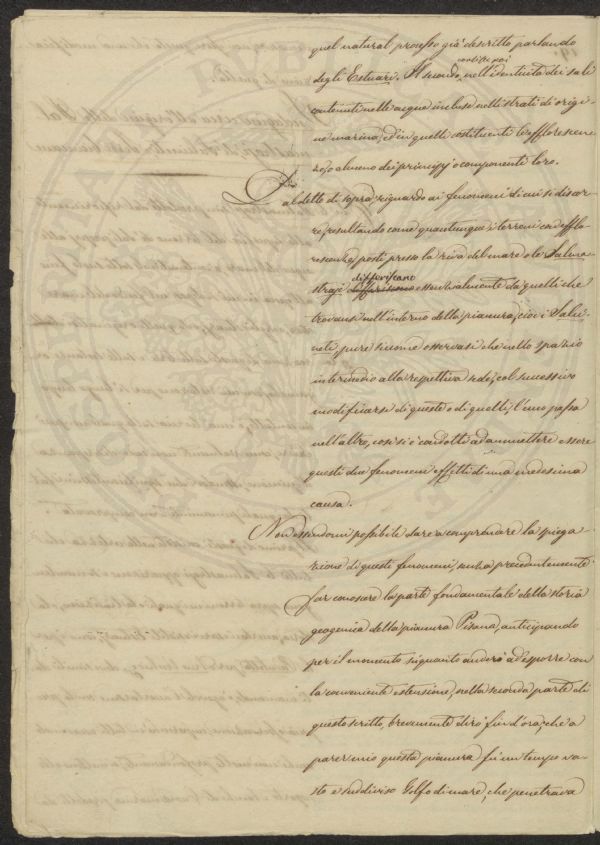 quel natural processo già descritto parlando
consiste poi
degli Estuari. Il secondo, nell'identicità dei sali
contenuti nelle acque incluse nelli strati di origi-
ne marina, ed in quelli costituenti le efflorescen-
ze, o almeno dei principj o componenti loro.
Dal detto di sopra, riguardo ai fenomeni di cui si discor-
re, resultando come quantunque i terreni con efflo-
rescenze, posti presso la riva del mare o le Salma-
differiscano
straje differiscono essenzialmente da quelli che
trovansi nell'interno della pianura, cioè i Salu-
neti, pure siccome osservasi che nello spazio
intermedio alla respettiva sede, col successivo
modificarsi di queste o di quelli, l'uno passa
nell'altro, così si è condotti ad ammettere essere
questi due fenomeni effetti di una medesima
causa.
Non essendomi possibile dare a comprendere la spiega-
zione di questi fenomeni, senza precedentemente
far conoscere la parte fondamentale della storia
geogenica della pianura Pisana, anticipando
per il momento su quanto anderò ad esporre con
la conveniente estensione, nella seconda parte di
questo scritto, brevemente dirò fin d'ora, che a
parer mio questa pianura fu un tempo va-
sto e suddiviso Golfo di mare, che penetrava